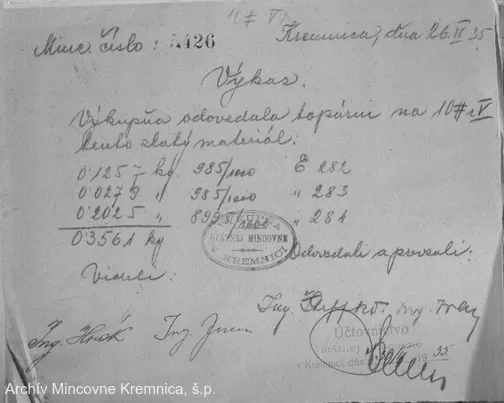 10 # V
Minc. číslo: 5426
Kremnica, dňa 26.IV.35
Výkaz.
Výkupňa odovzdala topárni na 10 # V
tento zlatý materiál:
0'125 - kg. 985/1000 E 282
0'0279 " 985/1000 " 283
0'2025 " 899/1000 " 284
0'3561 kg
VÝKUPŇA
ŠTÁTNEJ MINCOVNE
V KREMNICI
Odovzdali a prevzali:
Videli:
Ing.
Ing. Ing.
Účtovníctvo
štátnej mincovne
v Kremnici, dňa 1935
Archív Mincovne Kremnica, š.p.